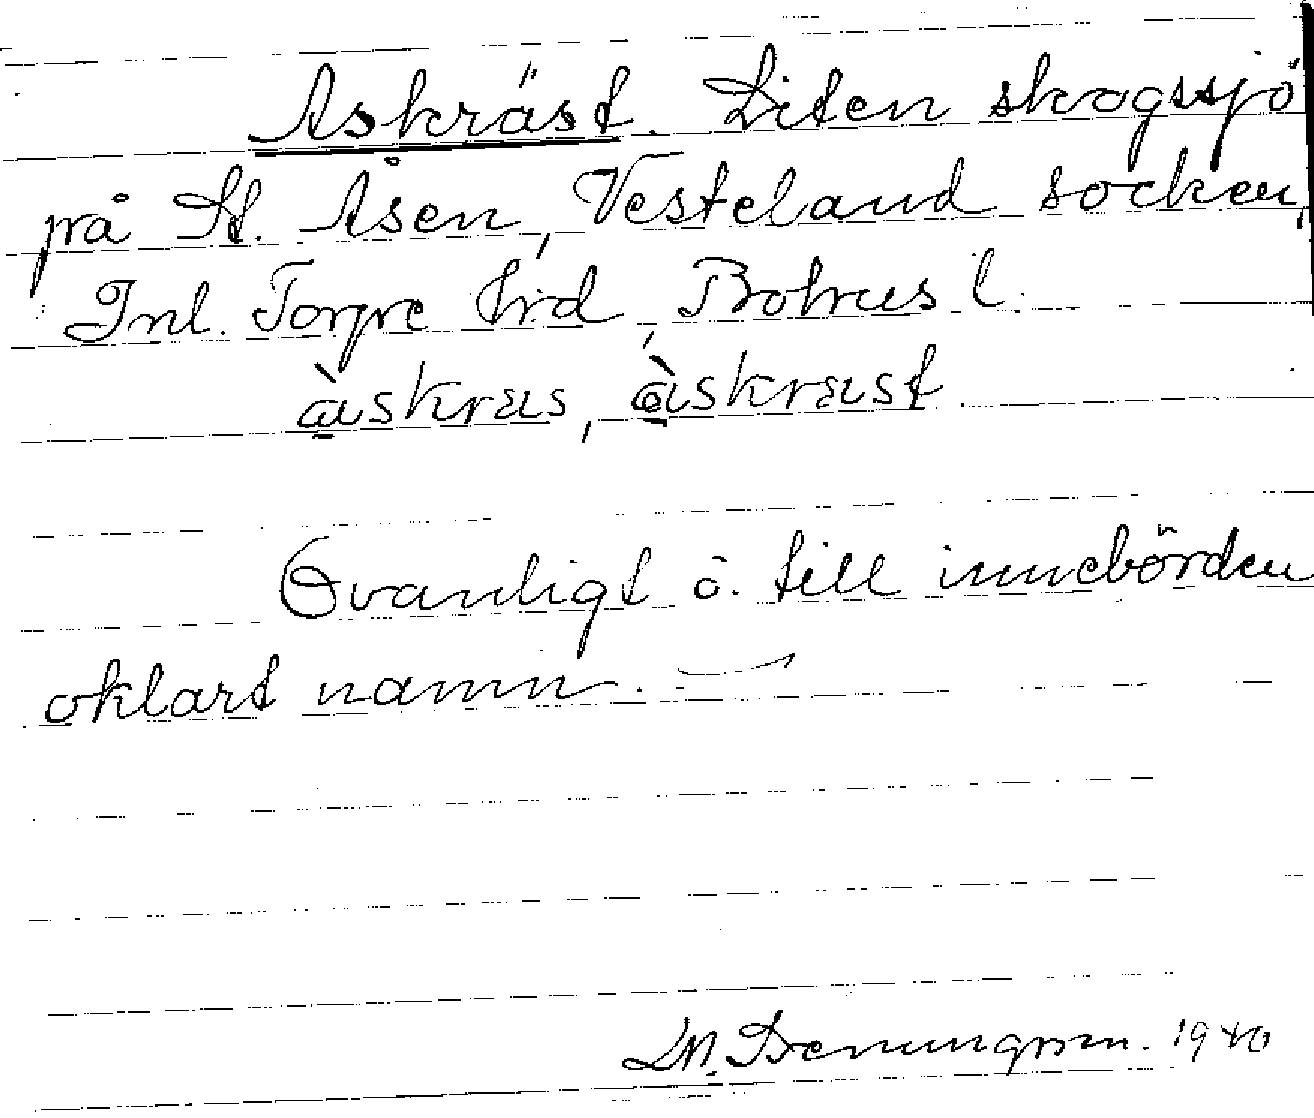 Askräst. Liten skogssjö
på St. Åsen, Vesteland socken,
Inl. Torpe hrd, Bohus l.
àskras, àskræst
Ovanligt o. till innebörden
oklart namn.
1940